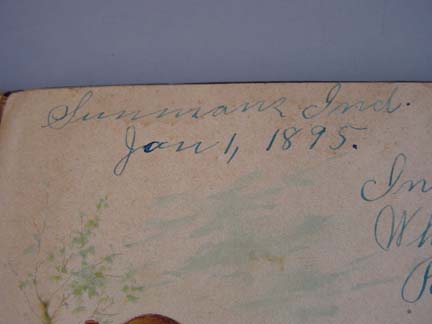 Sunmans Ind.
Jan 1, 1895.
In
Wh